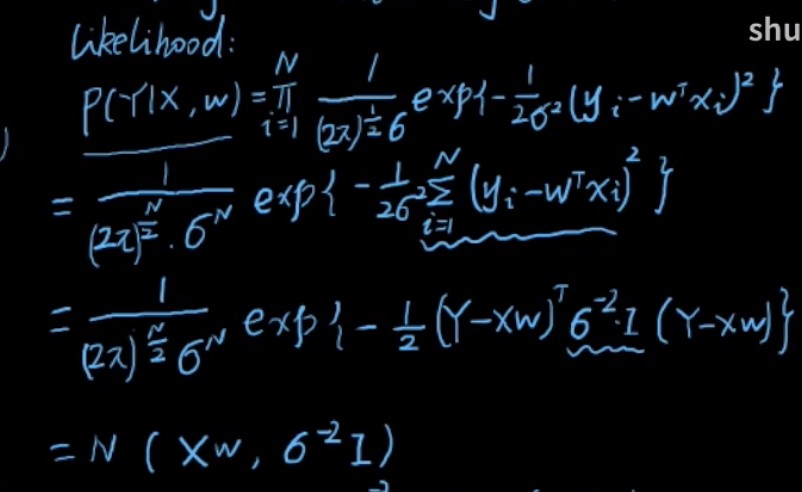 Likelihood:
shu
P(Y|X, w) = ∏_{i=1}^{N} 1/((2π)^{1/2} σ) exp{-1/(2σ²) (y_i - w^T x_i)²}
= 1/((2π)^{N/2} · σ^N) exp{-1/(2σ²) Σ_{i=1}^{N} (y_i - w^T x_i)²}
= 1/((2π)^{N/2} σ^N) exp{-1/2 (Y - Xw)^T σ^{-2} · I (Y - Xw)}
= N(Xw, σ^{-2} I)